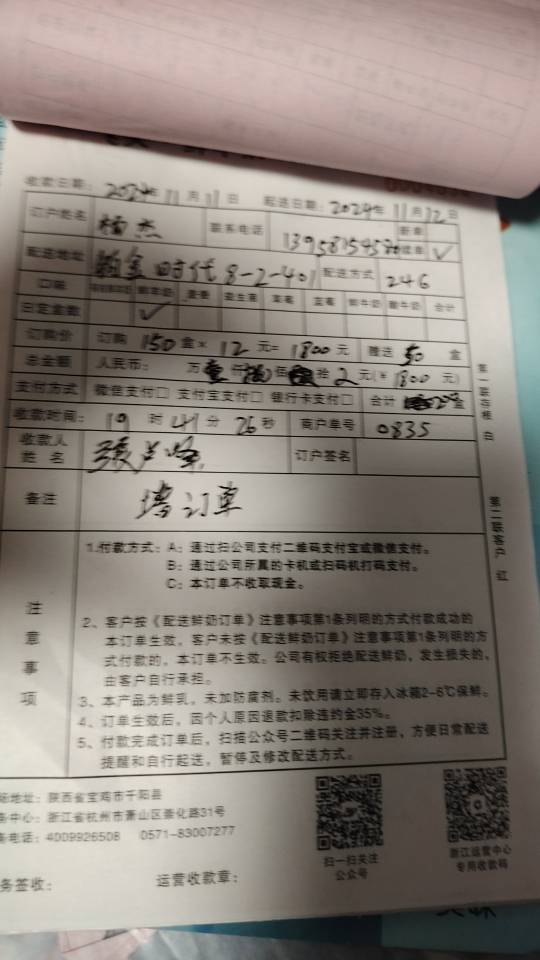 收款日期: 2024年11月11日 起送日期: 2024年11月12日
订户姓名 杨杰 联系电话 续单 ✓
配送地址 时代8-2-401 配送方式 246
口味 蓝莓 酸牛奶 合计
日定盒数 ✓
订购价 订购 150 盒× 12 元= 1800 元 赠送 50 盒
总金额 人民币: 万 仟 佰 拾 元(¥ 1800 元)
支付方式 微信支付□ 支付宝支付□ 银行卡支付□ 合计
收款时间: 19 时 41 分 26 秒 商户单号 0835
收款人姓名 订户签名
备注 订单
第一联存根 白
第二联客户 红
注意事项
1.付款方式: A: 通过扫公司支付二维码支付宝或微信支付。
B: 通过公司所属的卡机或扫码机打码支付。
C: 本订单不收取现金。
2、客户按《配送鲜奶订单》注意事项第1条列明的方式付款成功的
本订单生效, 客户未按《配送鲜奶订单》注意事项第1条列明的方
式付款的, 本订单不生效。公司有权拒绝配送鲜奶, 发生损失的,
由客户自行承担。
3、本产品为鲜乳, 未加防腐剂。未饮用请立即存入冰箱2-6℃保鲜。
4、订单生效后, 因个人原因退款扣除违约金35%。
5、付款完成订单后, 扫描公众号二维码关注并注册, 方便日常配送
提醒和自行起送, 暂停及修改配送方式。
场地址: 陕西省宝鸡市千阳县
务中心: 浙江省杭州市萧山区崇化路31号
务电话: 4009926508 0571-83007277
扫一扫关注
公众号
浙江运营中心
专用收款码
务签收: 运营收款章: